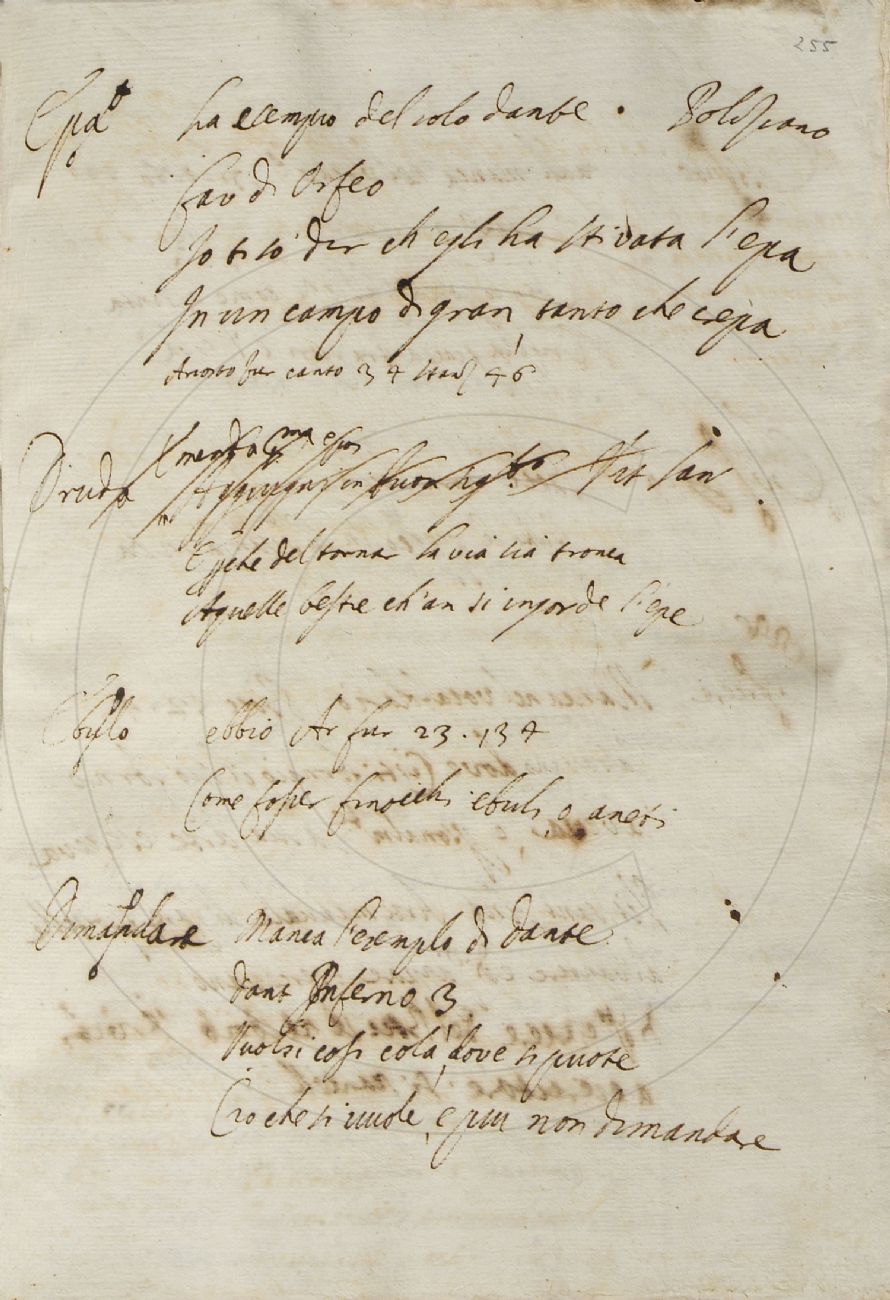 255
Epa ha esempio del solo dante. Poliziano
fav di Orfeo
Io ti so dir ch'egli ha stivata l'epa
In un campo di gran, tanto che crepa
Ariosto fur canto 34 stanz 46
Druda
E perche del tornar la via sia tronca
A quelle bestie ch'an si ingorde l'epe
Ebulo ebbio Ar fur 23. 134
Come fosser finocchi ebuli, o aneti
Dimandare Manca l'exemplo di dante
dant Inferno 3
Vuolsi cosi colà, dove si puote
Cio che si vuole, e piu non dimandare